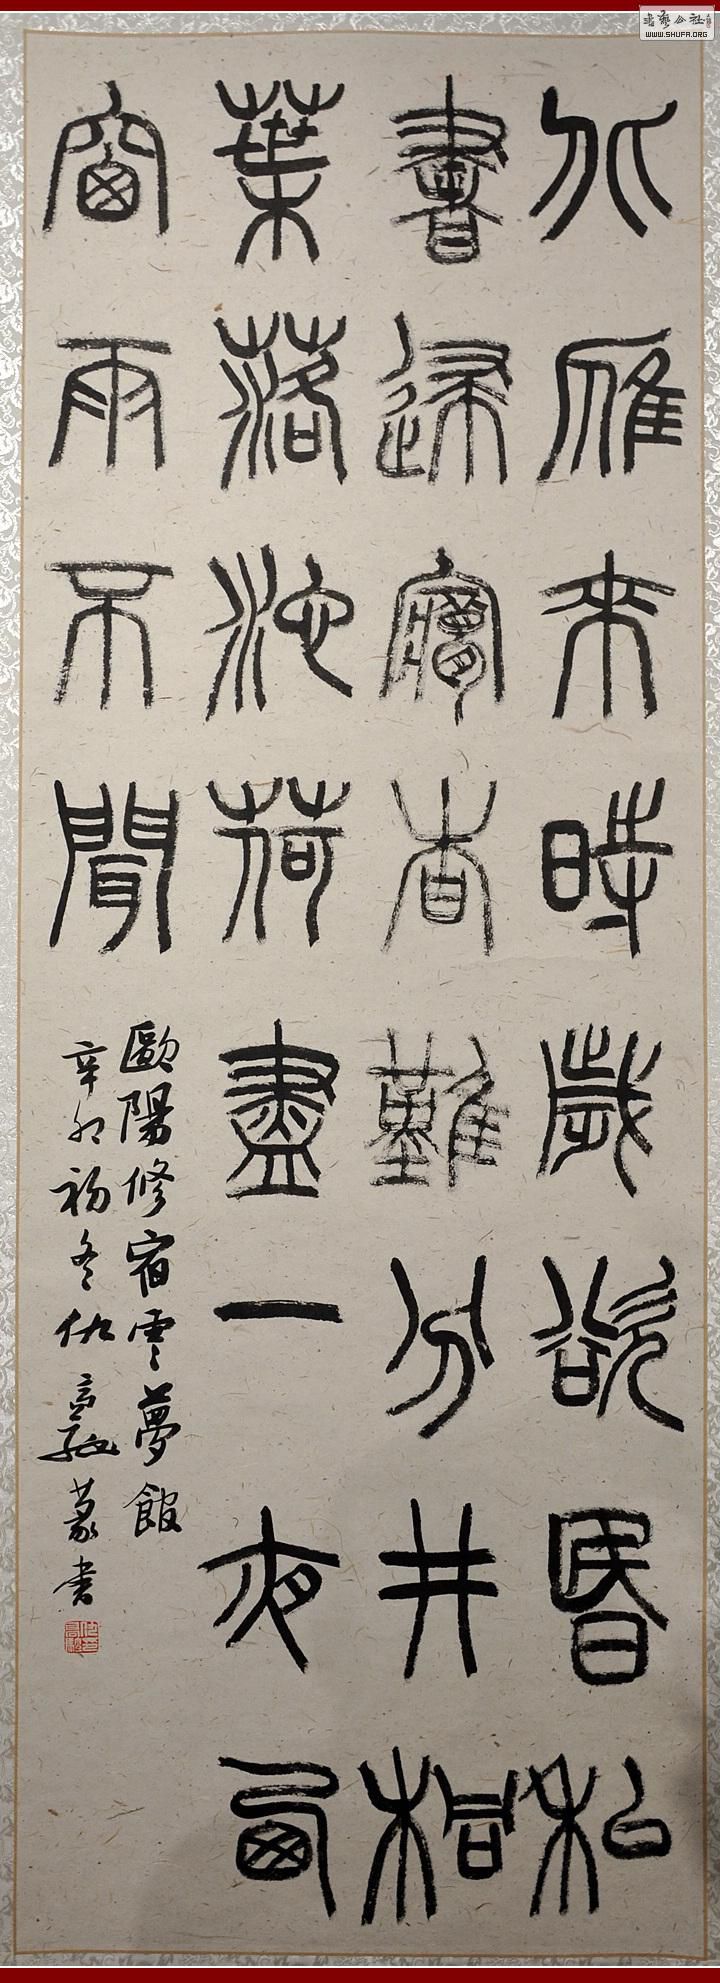 北雁來時歲欲昬私
書歸夢杳難分井桐
葉落池荷盡一夜西
窗雨不聞
歐陽修宿雲夢館
辛卯初冬仇高馳篆書
书艺公社
WWW.SHUFA.ORG